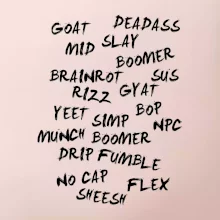 GOAT DEADASS
MID SLAY
BOOMER
BRAINROT SUS
RIZZ GYAT
YEET BOP
SIMP NPC
MUNCH BOOMER
DRIP FUMBLE
NO CAP FLEX
SHEESH